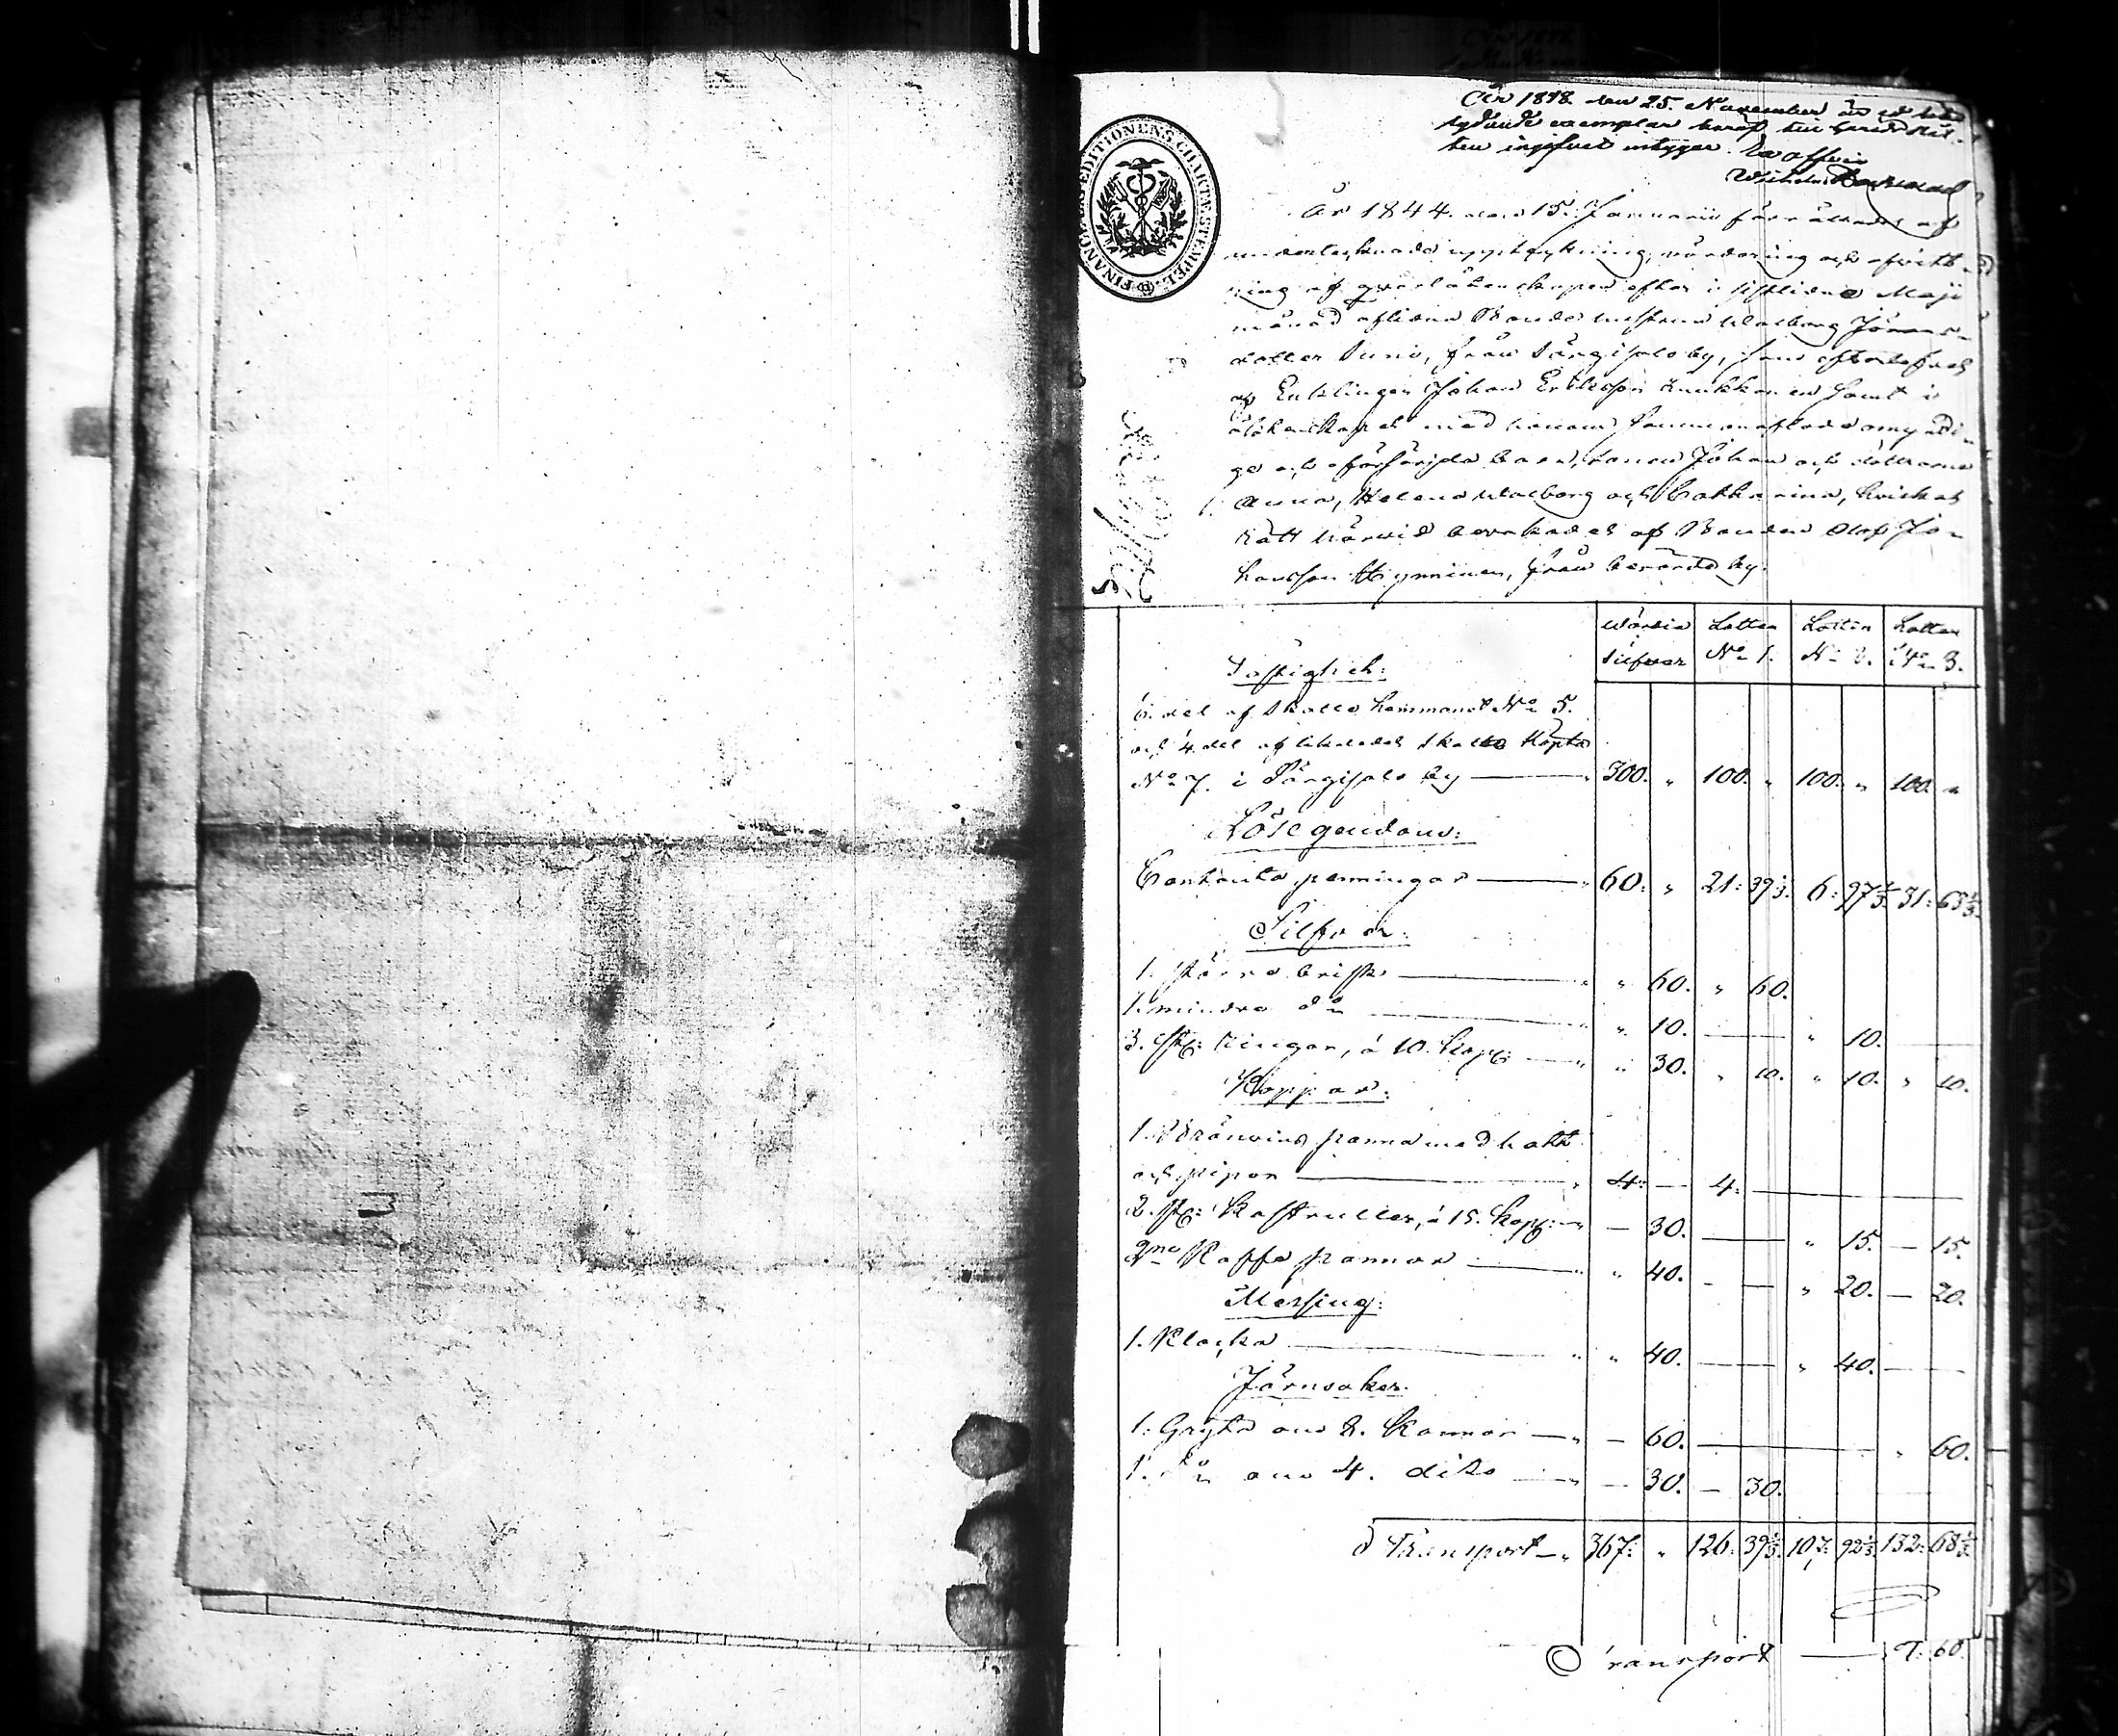 År 1848 den 25 November är ett lika
lydande exemplar häraf
intygar. Ex officio
Wilhelm
FINANCE EXPEDITIONENS CHARTÆ STEMPEL.
År 1844. den 15. Januarii förrättades af
undertecknade uppteckning, värdering och
ning af qvarlåtenskapen efter i sistlidne Maji
månad aflidna Bonde hustrun Walborg Jörans-
dotter Suni, från Särgisalo by, som efterlefves
af Enklingen Johan Eriksson samt i
äktenskapet med honom sammanaflade omyndi-
ge och oförsörjda barn, sonen Johan och döttrarne
Anna, Helena Walborg och Catharina, hvilkas
rätt härvid bevakades af Bonden Olof Jo-
hansson Hyninen, från berörde by.
Värde Silfver
Lotten No 1.
Lotten No 2.
Lotten No 3.
Fastighet:
del af Skatte hemmanet No 5.
och 4 del af likaledes Skatte
No 7. i Särgisalo by — 300. " 100. " 100. " 100. "
Lösegendom:
Contanta penningar — 60: " 21: 39 1/3. 6: 97 1/3. 31: 63 1/3.
Silfver:
1. större brisk — " 60. " 60.
1. mindre do — " 10. — " 10. —
3. st: Ringar, á 10. kop: — " 30. " 10. " 10. " 10.
Koppar:
1. Bränvins panna med hatt
och pipor — 4: — 4: —
2. st: Kastruller, á 15. kop: — 30. — " 15. — 15.
2ne Kaffe pannor — " 40. — " 20. — 20.
Messing:
1. Klocka — " 40. — " 40. —
Järnsaker:
1. Gryta om 8. Kannor — 60. — " 60.
1. do om 4. dito — 30. — 30.
Transport — 367: " 126: 39 1/3. 107: 92 1/3. 132: 68 1/3.
Transport — 7: 60.